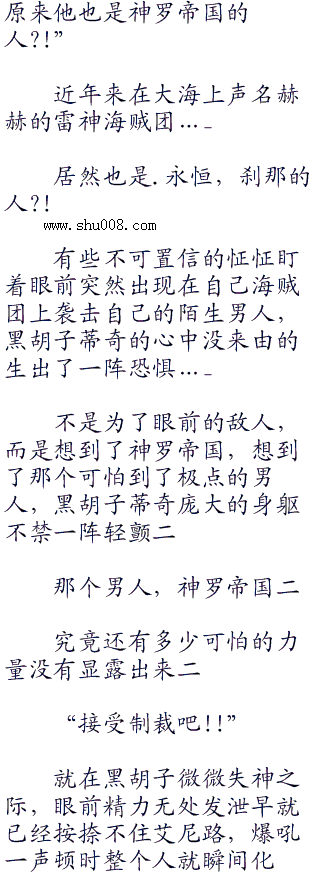 原来他也是神罗帝国的
人?!”
近年来在大海上声名赫
赫的雷神海贼团…_
居然也是.永恒，刹那的
人?!
www.shu008.com
有些不可置信的怔怔盯
着眼前突然出现在自己海贼
团上袭击自己的陌生男人，
黑胡子蒂奇的心中没来由的
生出了一阵恐惧…_
不是为了眼前的敌人，
而是想到了神罗帝国，想到
了那个可怕到了极点的男
人，黑胡子蒂奇庞大的身躯
不禁一阵轻颤二
那个男人，神罗帝国二
究竟还有多少可怕的力
量没有显露出来二
“接受制裁吧!!”
就在黑胡子微微失神之
际，眼前精力无处发泄早就
已经按捺不住艾尼路，爆吼
一声顿时整个人就瞬间化